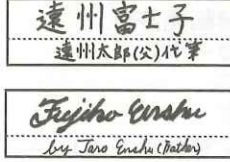 遠州富士子
遠州太郎(父)代筆
Fujiko Enshu
by Taro Enshu (Father)